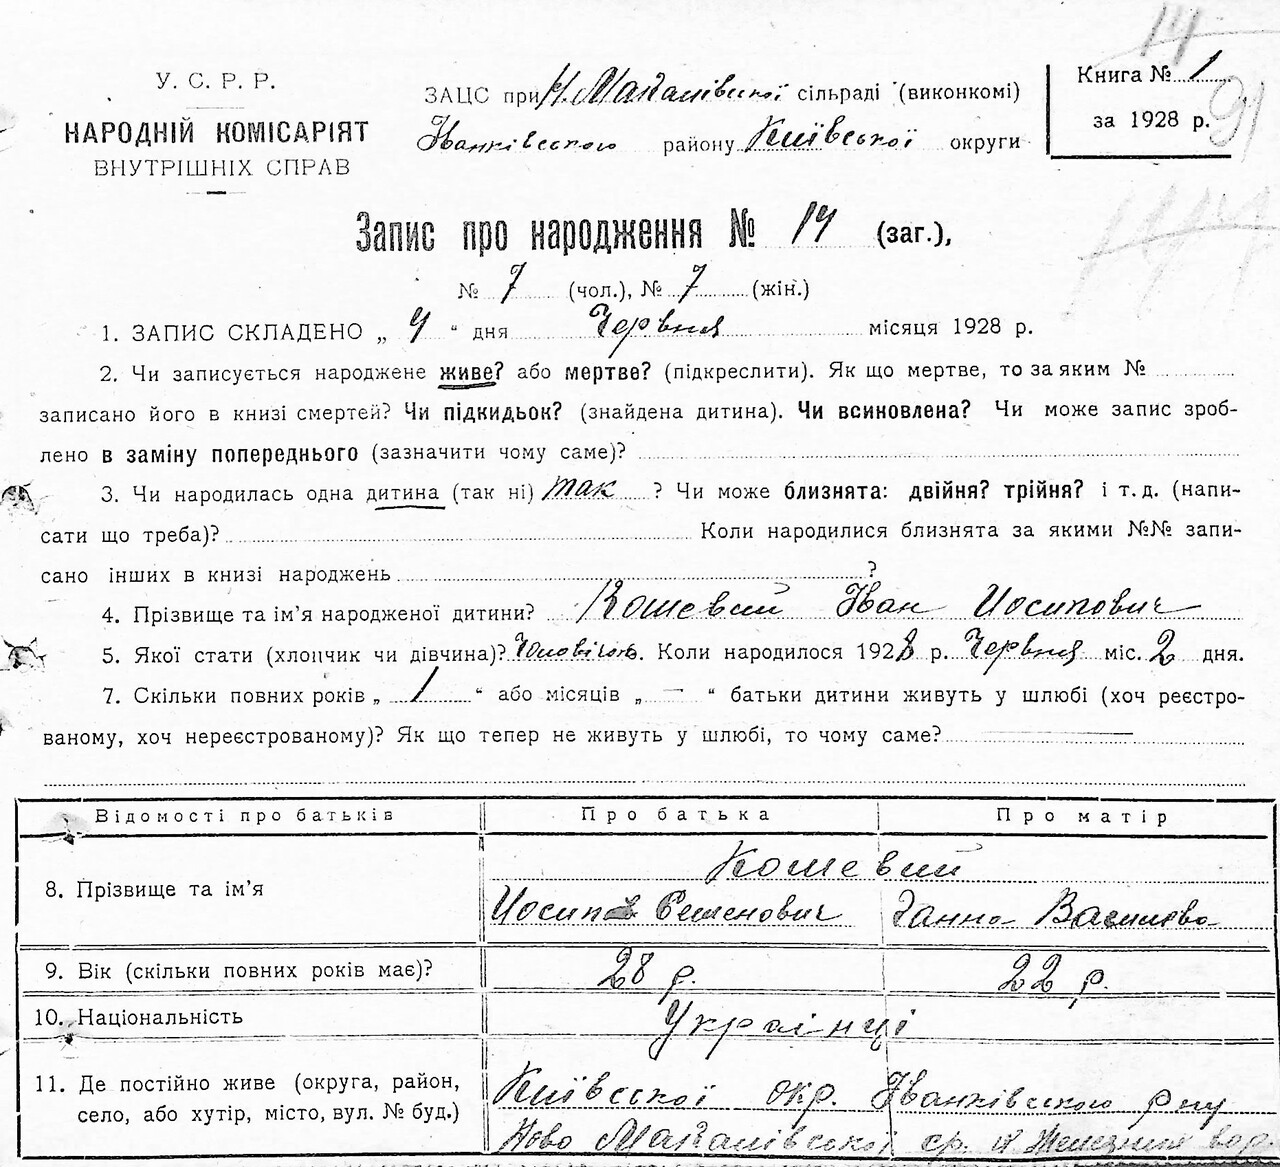 14
У. С. Р. Р.
НАРОДНІЙ КОМІСАРІЯТ
ВНУТРІШНІХ СПРАВ
ЗАЦС при Н. Макалівської сільраді (виконкомі)
Іванківського району Київської округи
Книга № 1
за 1928 р.
91
Запис про народження № 14 (заг.),
№ 7 (чол.), № 7 (жін.)
1. ЗАПИС СКЛАДЕНО „ 4 “ дня Червня місяця 1928 р.
2. Чи записується народжене живе? або мертве? (підкреслити). Як що мертве, то за яким №
записано його в книзі смертей? Чи підкидьок? (знайдена дитина). Чи всиновлена? Чи може запис зроб-
лено в заміну попереднього (зазначити чому саме)?
3. Чи народилась одна дитина (так ні) так ? Чи може близнята: двійня? трійня? і т. д. (напи-
сати що треба)? Коли народилися близнята за якими №№ запи-
сано інших в книзі народжень ?
4. Прізвище та ім’я народженої дитини? Кошевий Іван Иосипович
5. Якої стати (хлопчик чи дівчина)? Коли народилося 1928 р. Червня міс. 2 дня.
7. Скільки повних років „ 1 “ або місяців „ — “ батьки дитини живуть у шлюбі (хоч реєстро-
ваному, хоч нереєстрованому)? Як що тепер не живуть у шлюбі, то чому саме?
Відомості про батьків Про батька Про матір
8. Прізвище та ім’я Кошевий
Иосип Семенович Ганна Василєва
9. Вік (скільки повних років має)? 28 р. 22 р.
10. Національність Українці
11. Де постійно живе (округа, район, Київської окр. Іванківського рну
село, або хутір, місто, вул. № буд.) Ново Макалівської ср.